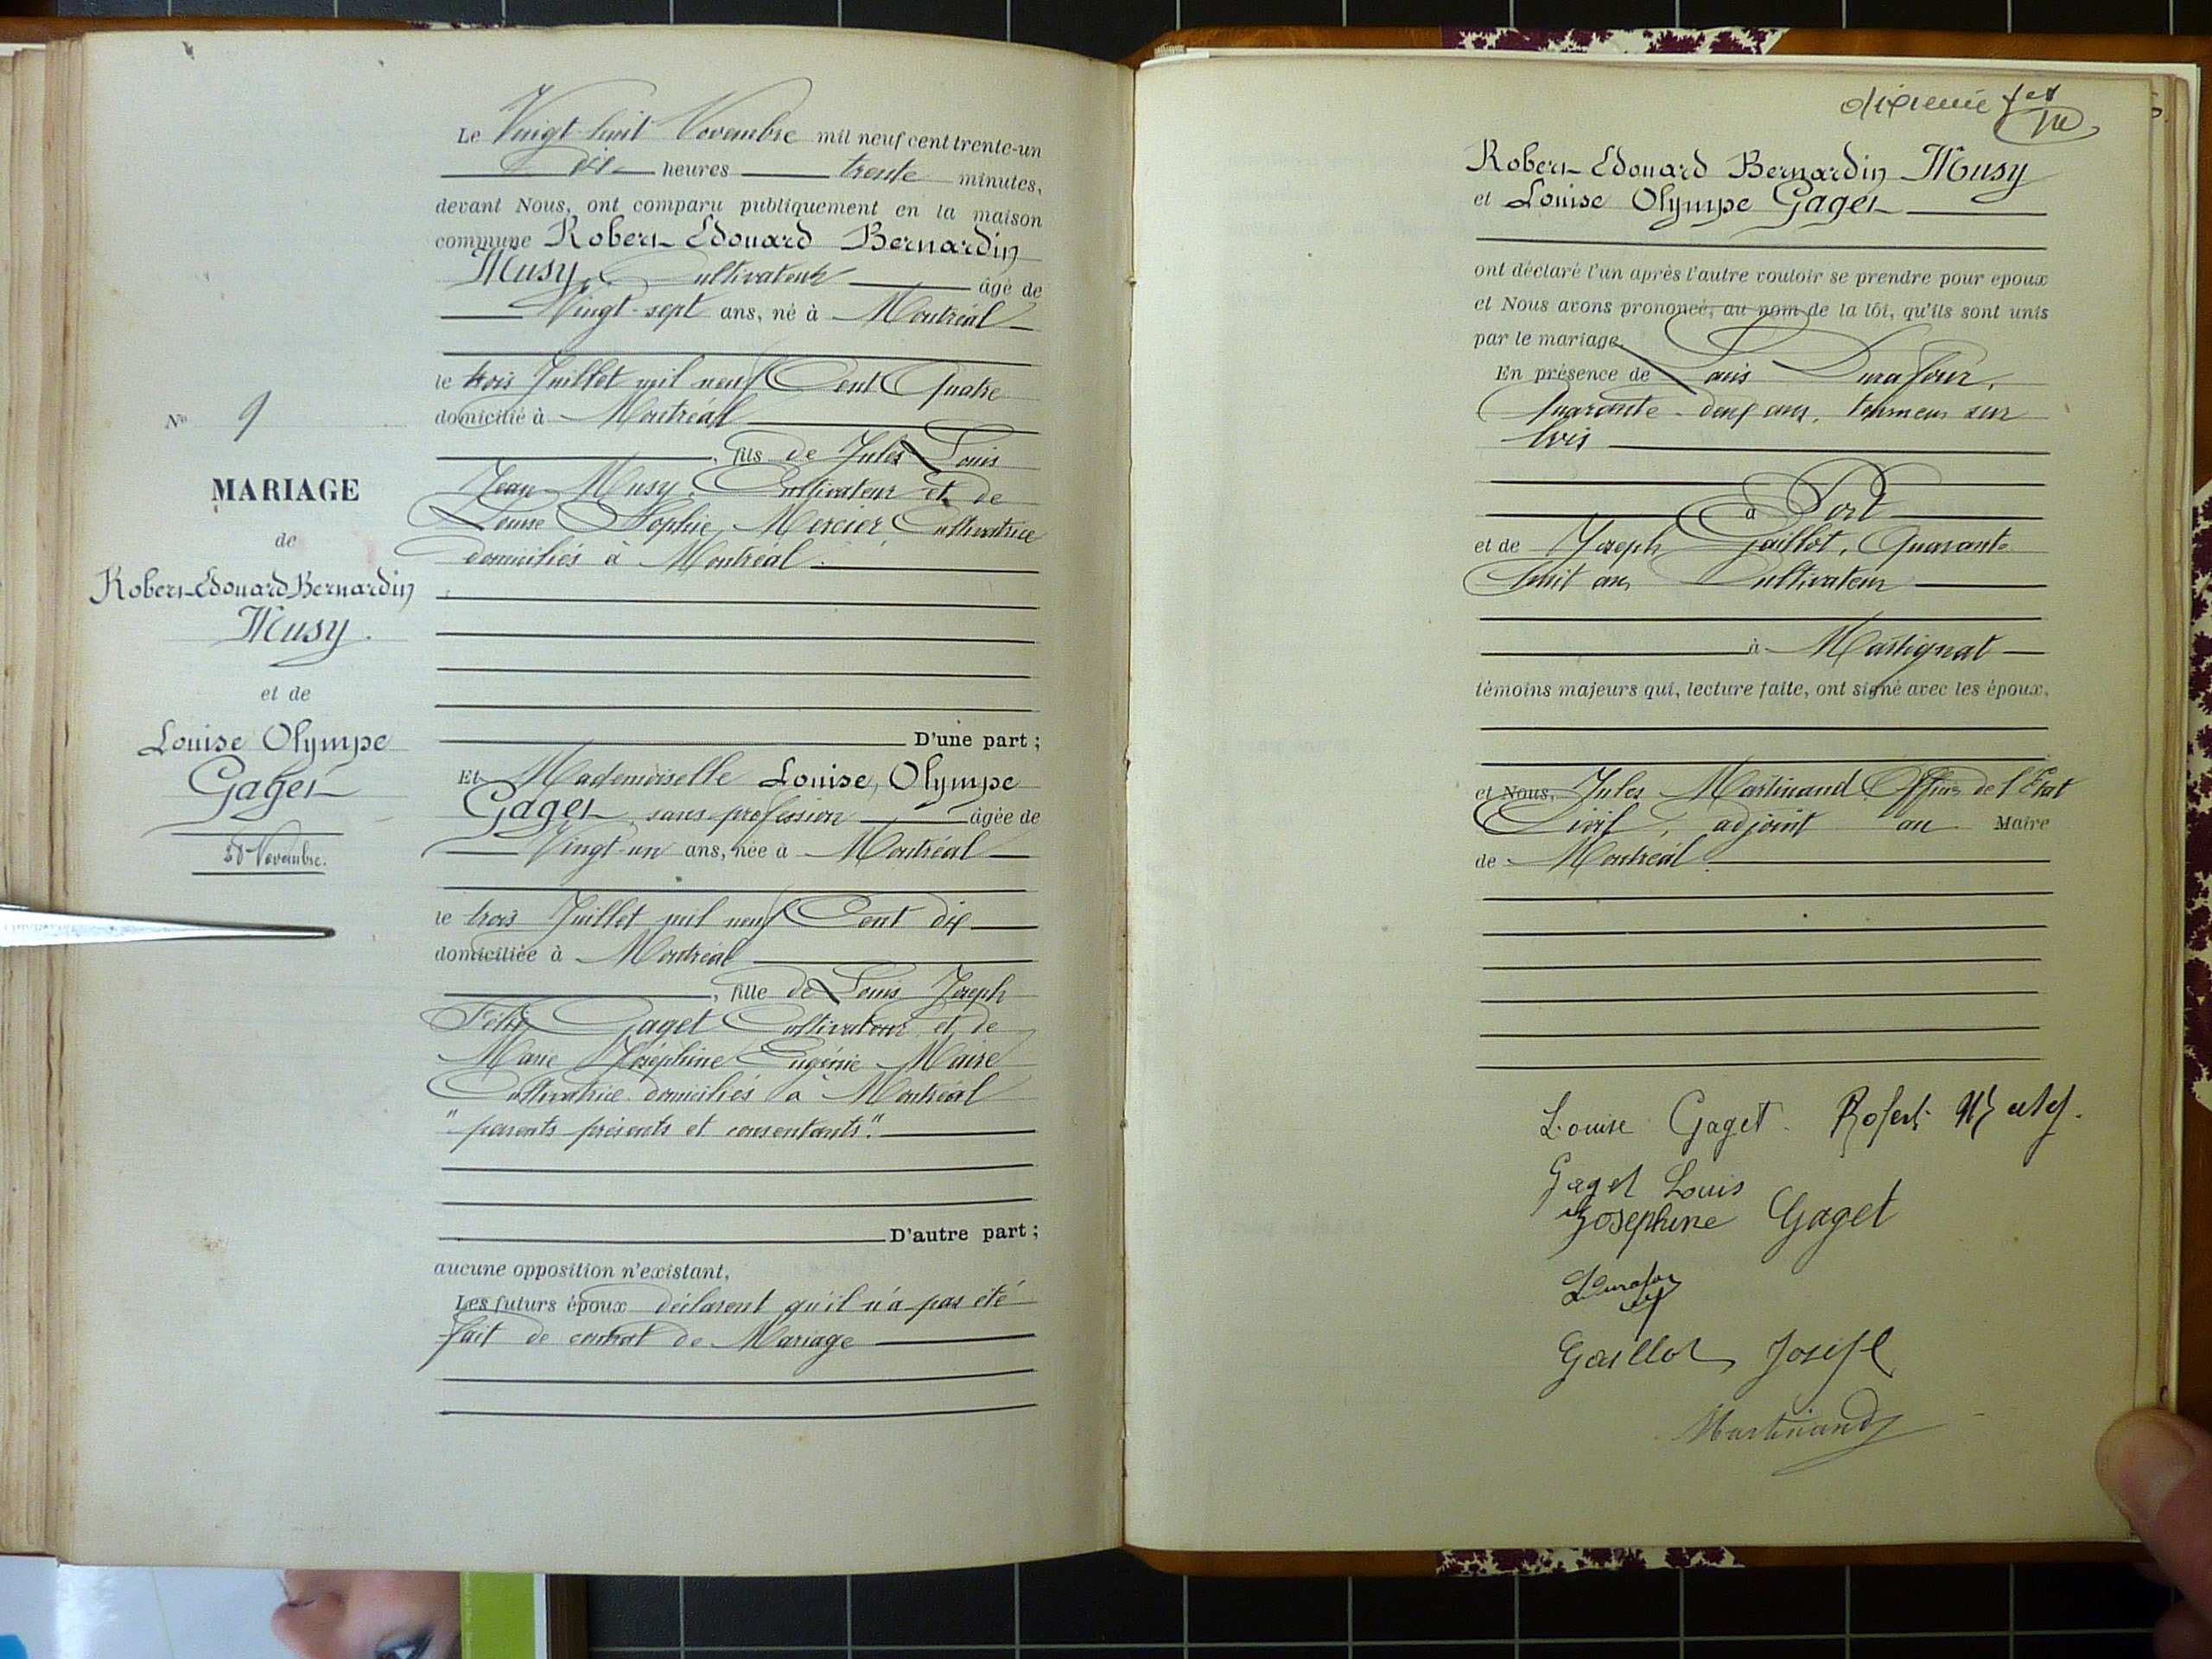 Le Vingt-huit Novembre mil neuf cent trente-un
dix heures trente minutes,
devant Nous, ont comparu publiquement en la maison
commune Robert Edouard Bernardin
Musy, Cultivateur âgé de
Vingt-sept ans, né à Montréal
le trois Juillet mil neuf Cent Quatre
domicilié à Montréal
, fils de Jules Louis
Jean Musy, Cultivateur et de
Louise Sophie Mercier Cultivatrice
domiciliés à Montréal.
D'une part ;
Et Mademoiselle Louise, Olympe
Gaget, sans profession âgée de
Vingt-un ans, née à Montréal
le trois Juillet mil neuf Cent dix
domiciliée à Montréal
, fille de Louis Joseph
Félix Gaget Cultivateur et de
Marie Joséphine Eugénie Maire
Cultivatrice domiciliés à Montréal
"parents présents et consentants".
D'autre part ;
aucune opposition n'existant,
Les futurs époux déclarent qu'il n'a pas été
fait de contrat de Mariage
No 9
MARIAGE
de
Robert-Edouard-Bernardin
Musy.
et de
Louise Olympe
Gaget
28 Novembre.
Robert-Edouard Bernardin Musy
et Louise Olympe Gaget
ont déclaré l'un après l'autre vouloir se prendre pour epoux
et Nous avons prononcé, au nom de la loi, qu'ils sont unis
par le mariage.
En présence de Louis Durafour,
Quarante-deux ans, tourneur sur
bois
à Port
et de Joseph Gaillot, Quarante
huit ans Cultivateur
à Martignat
témoins majeurs qui, lecture faite, ont signé avec les époux,
et Nous, Jules Martinand Officier de l'Etat
Civil, adjoint au Maire
de Montréal
Louise Gaget. Robert Musy.
Gaget Louis
Josephine Gaget
Durafour
Gaillot Joseph
Martinand